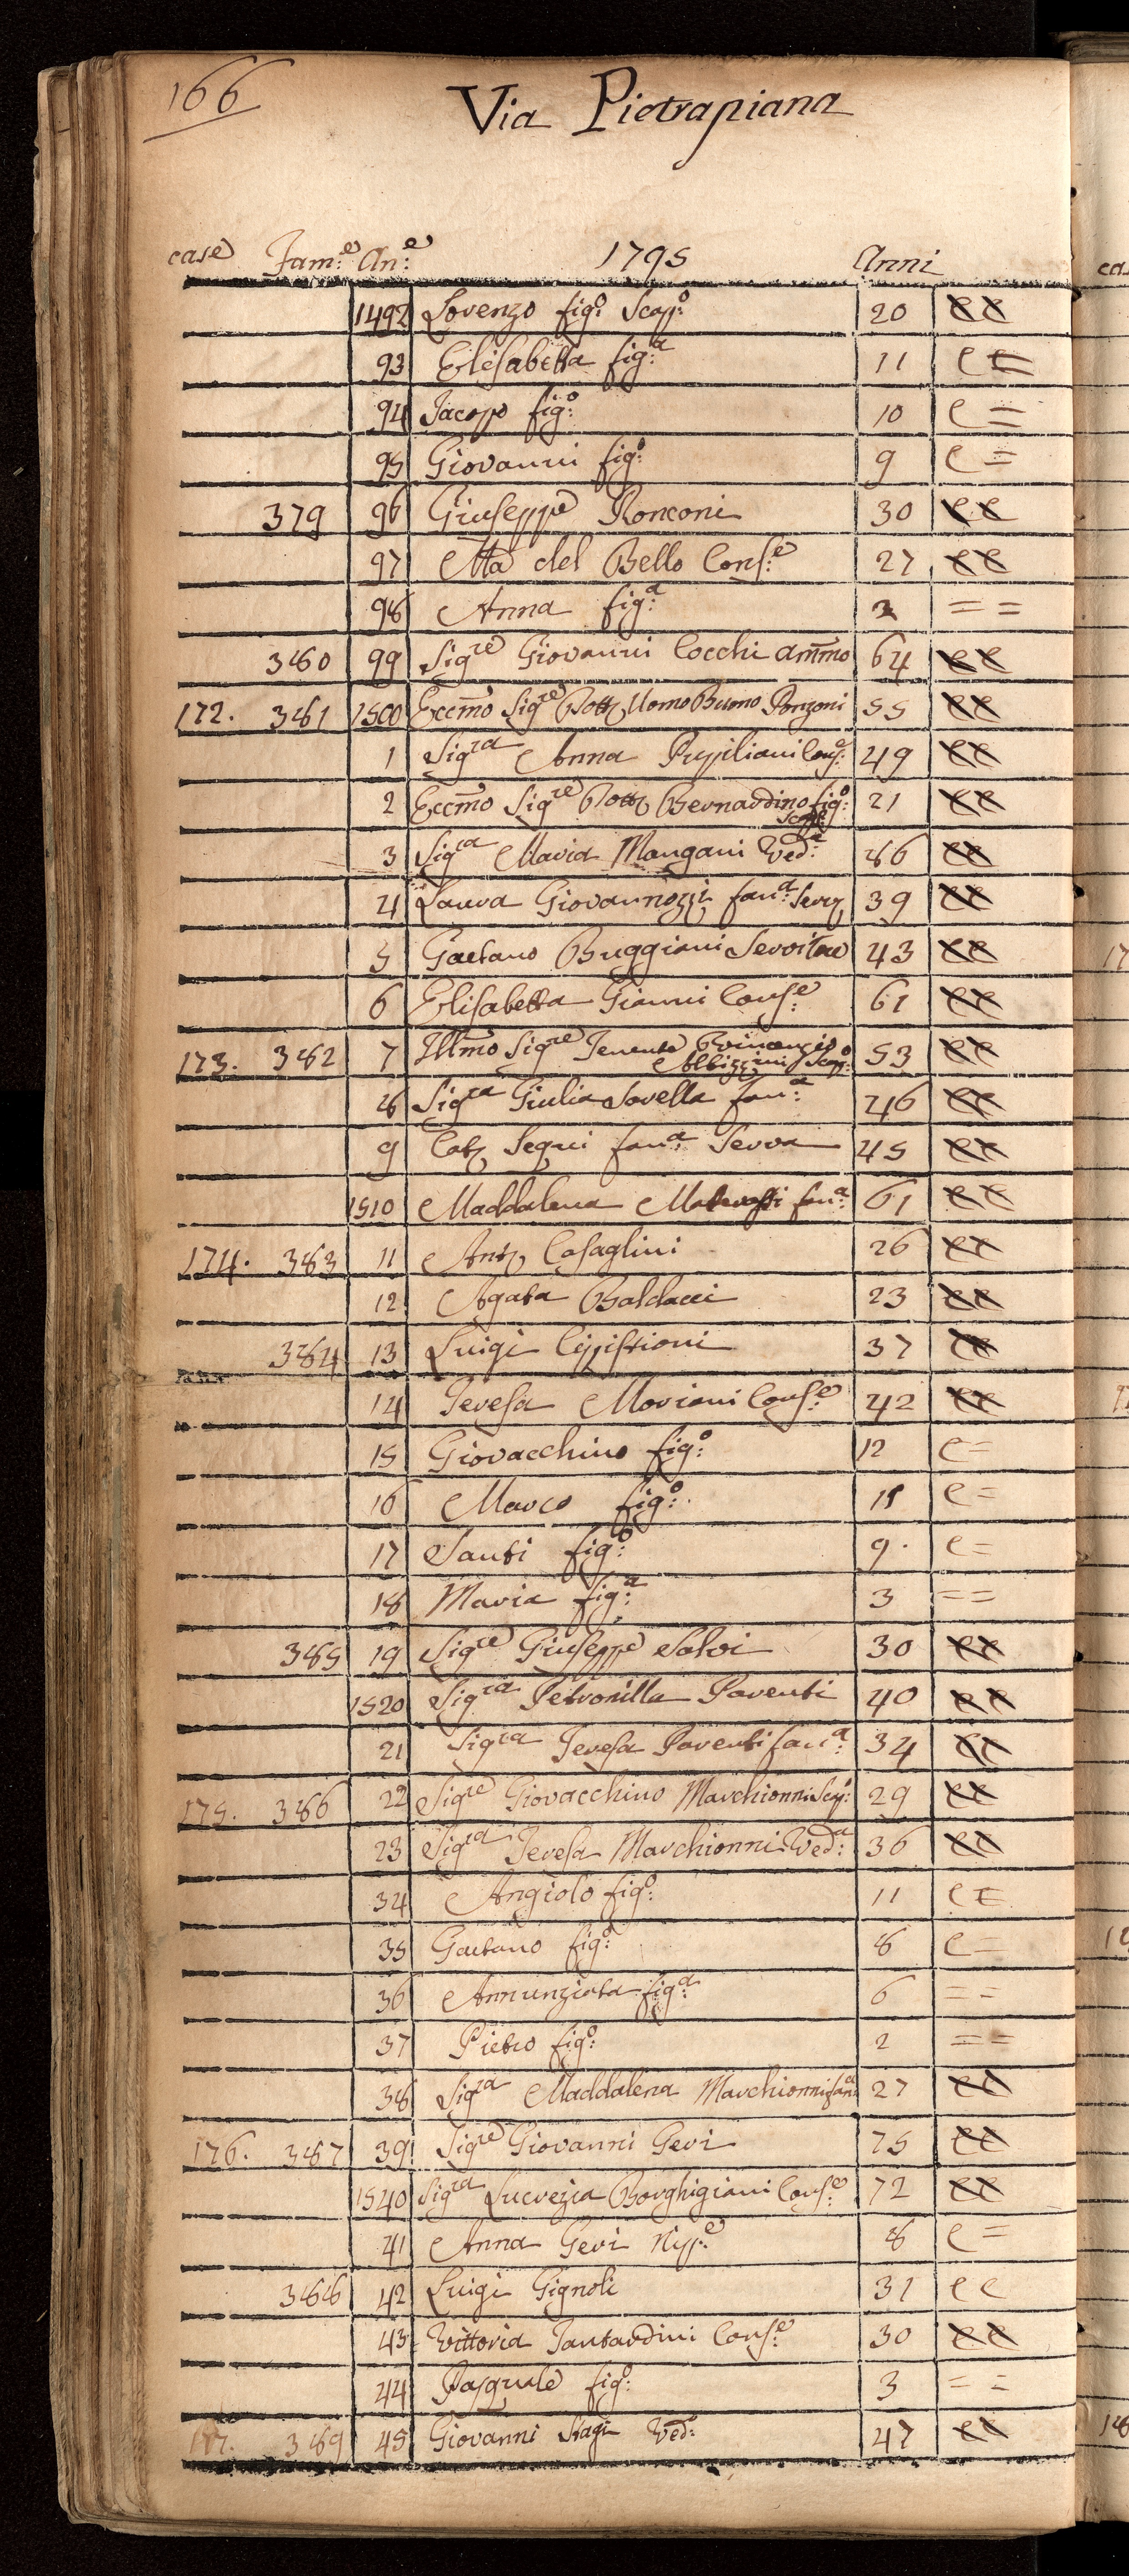 166
Via Pietrapiana
case Fam:e An:e 1795 Anni
1492 Lorenzo fig:o Scap:o 20 c c
93 Elisabetta fig:a 11 c c =
94 Jacopo fig:o 10 c =
95 Giovanni fig:o 9 c =
379 96 Giuseppe Ronconi 30 c c
97 Ma del Bello Cons:e 27 c c
98 Anna fig:a 3 = =
380 99 Sigre Giovanni Cocchi Ammo 64 c c
172. 381 1500 Eccmo Sigre Dott. Uomo Buono Ponzoni 55 c c
1 Sigra Anna Pupiliani Cons:e 49 c c
2 Eccmo Sigre Dott. Bernardino fig:o Scap:o 21 c c
3 Sigra Maria Mangani Ved:a 86 c c
4 Laura Giovannozzi fan:a Serv. 39 c c
5 Gaetano Buggiani Servitore 43 c c
6 Elisabetta Gianni Cons:e 61 c c
173. 382 7 Illmo Sigre Tenente
Albizzini Scap:o 53 c c
8 Sigra Giulia Sovella fan:a 46 c c
9 Cat. Segni fan:a Serva 45 c c
1510 Maddalena fan:a 61 c c
174. 383 11 Ant. Casaglini 26 c c
12 Agata Baldacci 23 c c
384 13 Luigi Cipistioni 37 c c
14 Teresa Moriani Cons:e 42 c c
15 Giovacchino fig:o 12 c =
16 Marco fig:o 11 c =
17 Santi fig:o 9. c =
18 Maria fig:a 3 = =
385 19 Sigre Giuseppe Salvi 30 c c
1520 Sigra Petronilla Parenti 40 c c
21 Sigra Teresa Parenti fan:a 34 c c
175. 386 22 Sigre Giovacchino Marchionni Scap:o 29 c c
23 Sigra Teresa Marchionni Ved:a 36 c c
34 Angiolo fig:o 11 c c =
35 Gaetano fig:o 8 c =
36 Annunziata fig:a 6 = =
37 Pietro fig:o 2 = =
38 Sigra Maddalena Marchionni fan:a 27 c c
176. 387 39 Sigre Giovanni Geri 75 c c
1540 Sigra Lucrezia Borghigiani Cons:e 72 c c
41 Anna Geri Nip:e 8 c =
388 42 Luigi Gignoli 31 c c
43 Vittoria Tantardini Cons:e 30 c c
44 Pasquale fig:o 3 = =
177. 389 45 Giovanni Stagi Ved:o 47 c c